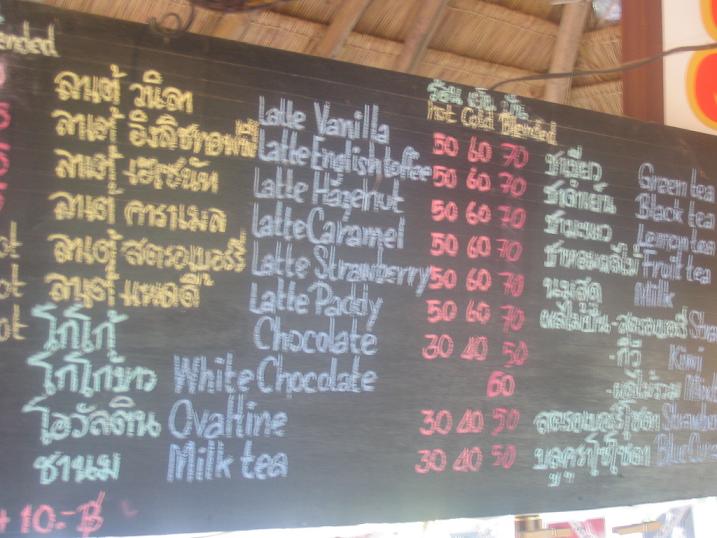 ended
ร้อน เย็น ปั่น
Hot Cold Blended
ลาเต้ วนิลา Latte Vanilla 50 60 70
ลาเต้ อิงลิชทอฟฟี่ Latte English toffee 50 60 70
ลาเต้ เฮเซนัท Latte Hazenut 50 60 70
ลาเต้ คาราเมล Latte Caramel 50 60 70
ลาเต้ สตรอเบอร์รี่ Latte Strawberry 50 60 70
ลาเต้ แพดดี้ Latte Paddy 50 60 70
โกโก้ Chocolate 30 40 50
โกโก้ขาว White Chocolate 60
โอวัลติน Ovaltine 30 40 50
ชานม Milk tea 30 40 50
+ 10.- ฿
ชาเขียว Green tea
ชาดำเย็น Black tea
ชามะนาว Lemon tea
ชาผลไม้ Fruit tea
นมสด Milk
ผลไม้ปั่น - สตรอเบอรี่
- กีวี Kiwi
- ผลไม้รวม
สตรอเบอรี่โซดา
บลู